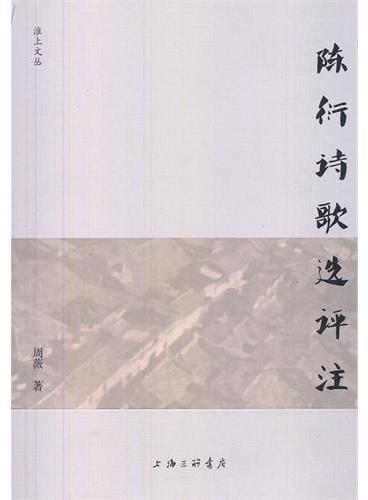 淮上文丛
陈衍诗歌选评注
周薇 著
上海三联书店